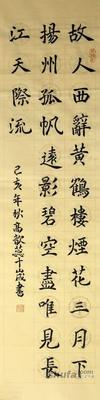 故人西辭黃鶴樓煙花三月下
揚州孤帆遠影碧空盡唯見長
江天際流
己亥年秋高十歲書